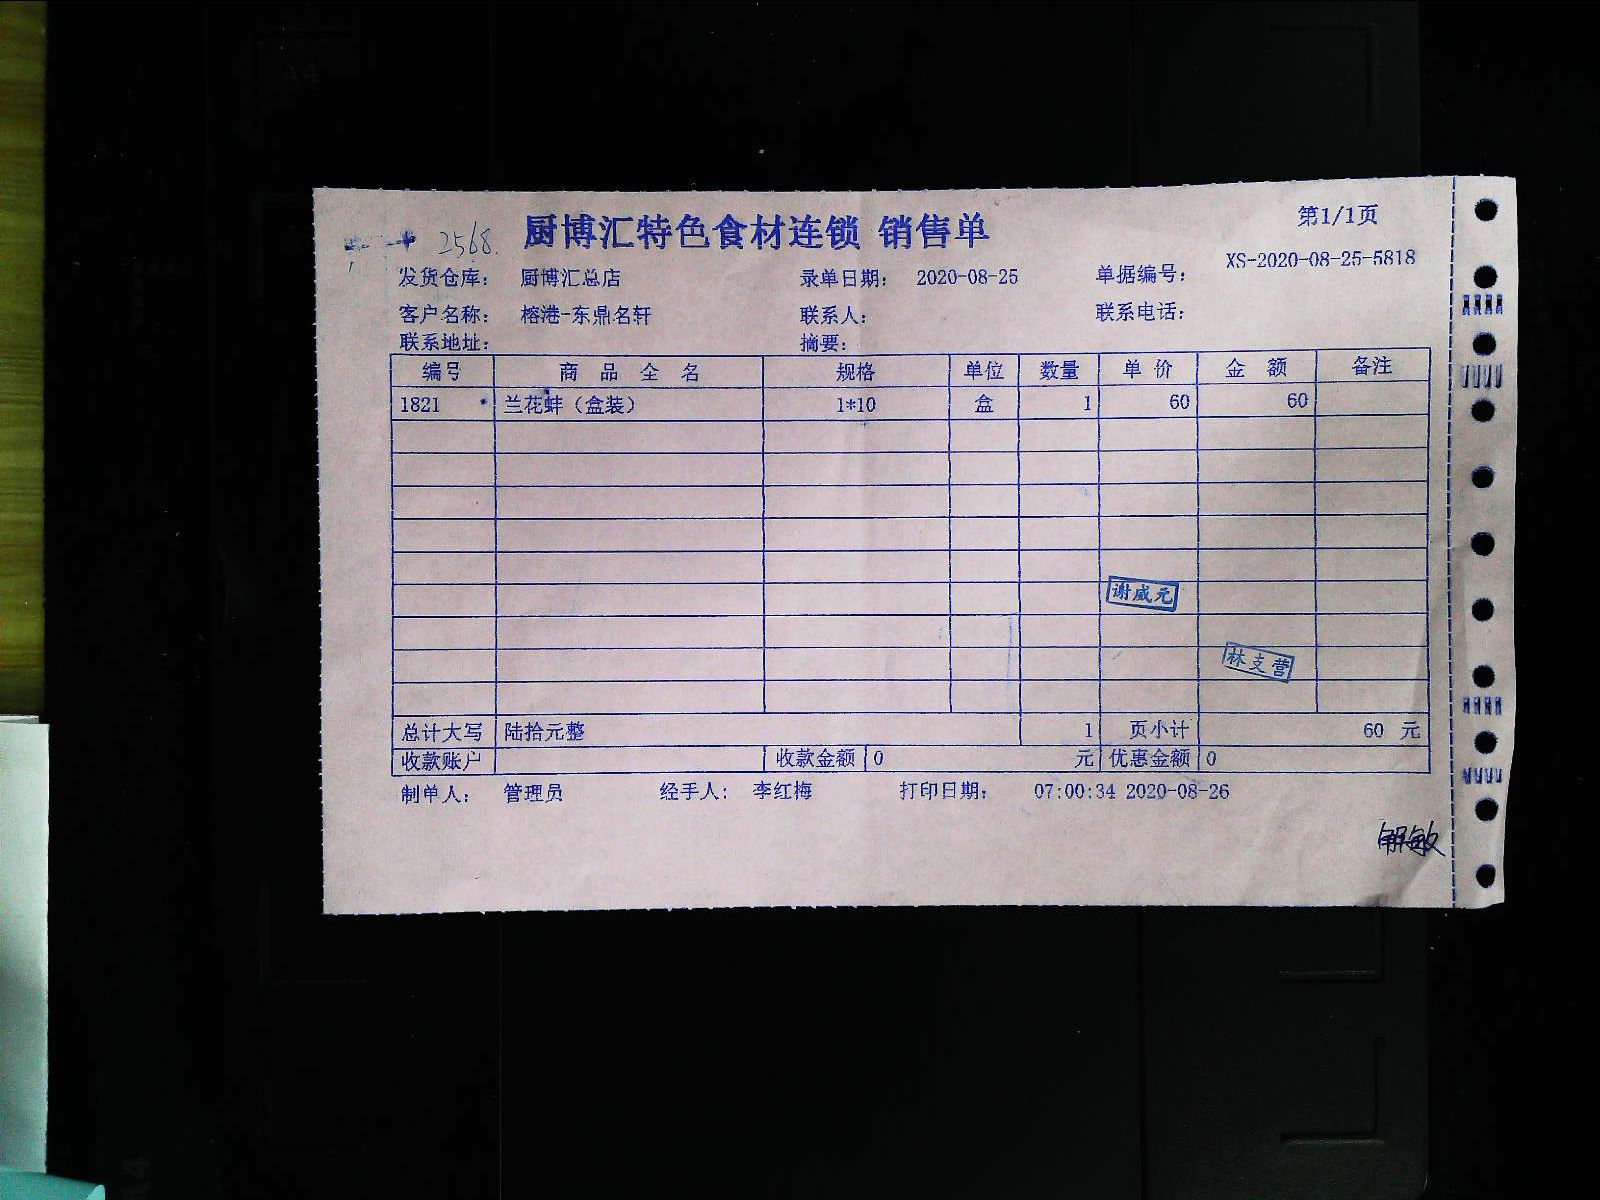 第1/1页
2568.
厨博汇特色食材连锁 销售单
XS-2020-08-25-5818
发货仓库： 厨博汇总店 录单日期： 2020-08-25 单据编号：
客户名称： 榕港-东鼎名轩 联系人： 联系电话：
联系地址： 摘要：
编号 商 品 全 名 规格 单位 数量 单 价 金 额 备注
1821 兰花蚌（盒装） 1*10 盒 1 60 60
谢威元
林支营
总计大写 陆拾元整 1 页小计 60 元
收款账户 收款金额 0 元 优惠金额 0
制单人： 管理员 经手人： 李红梅 打印日期： 07:00:34 2020-08-26